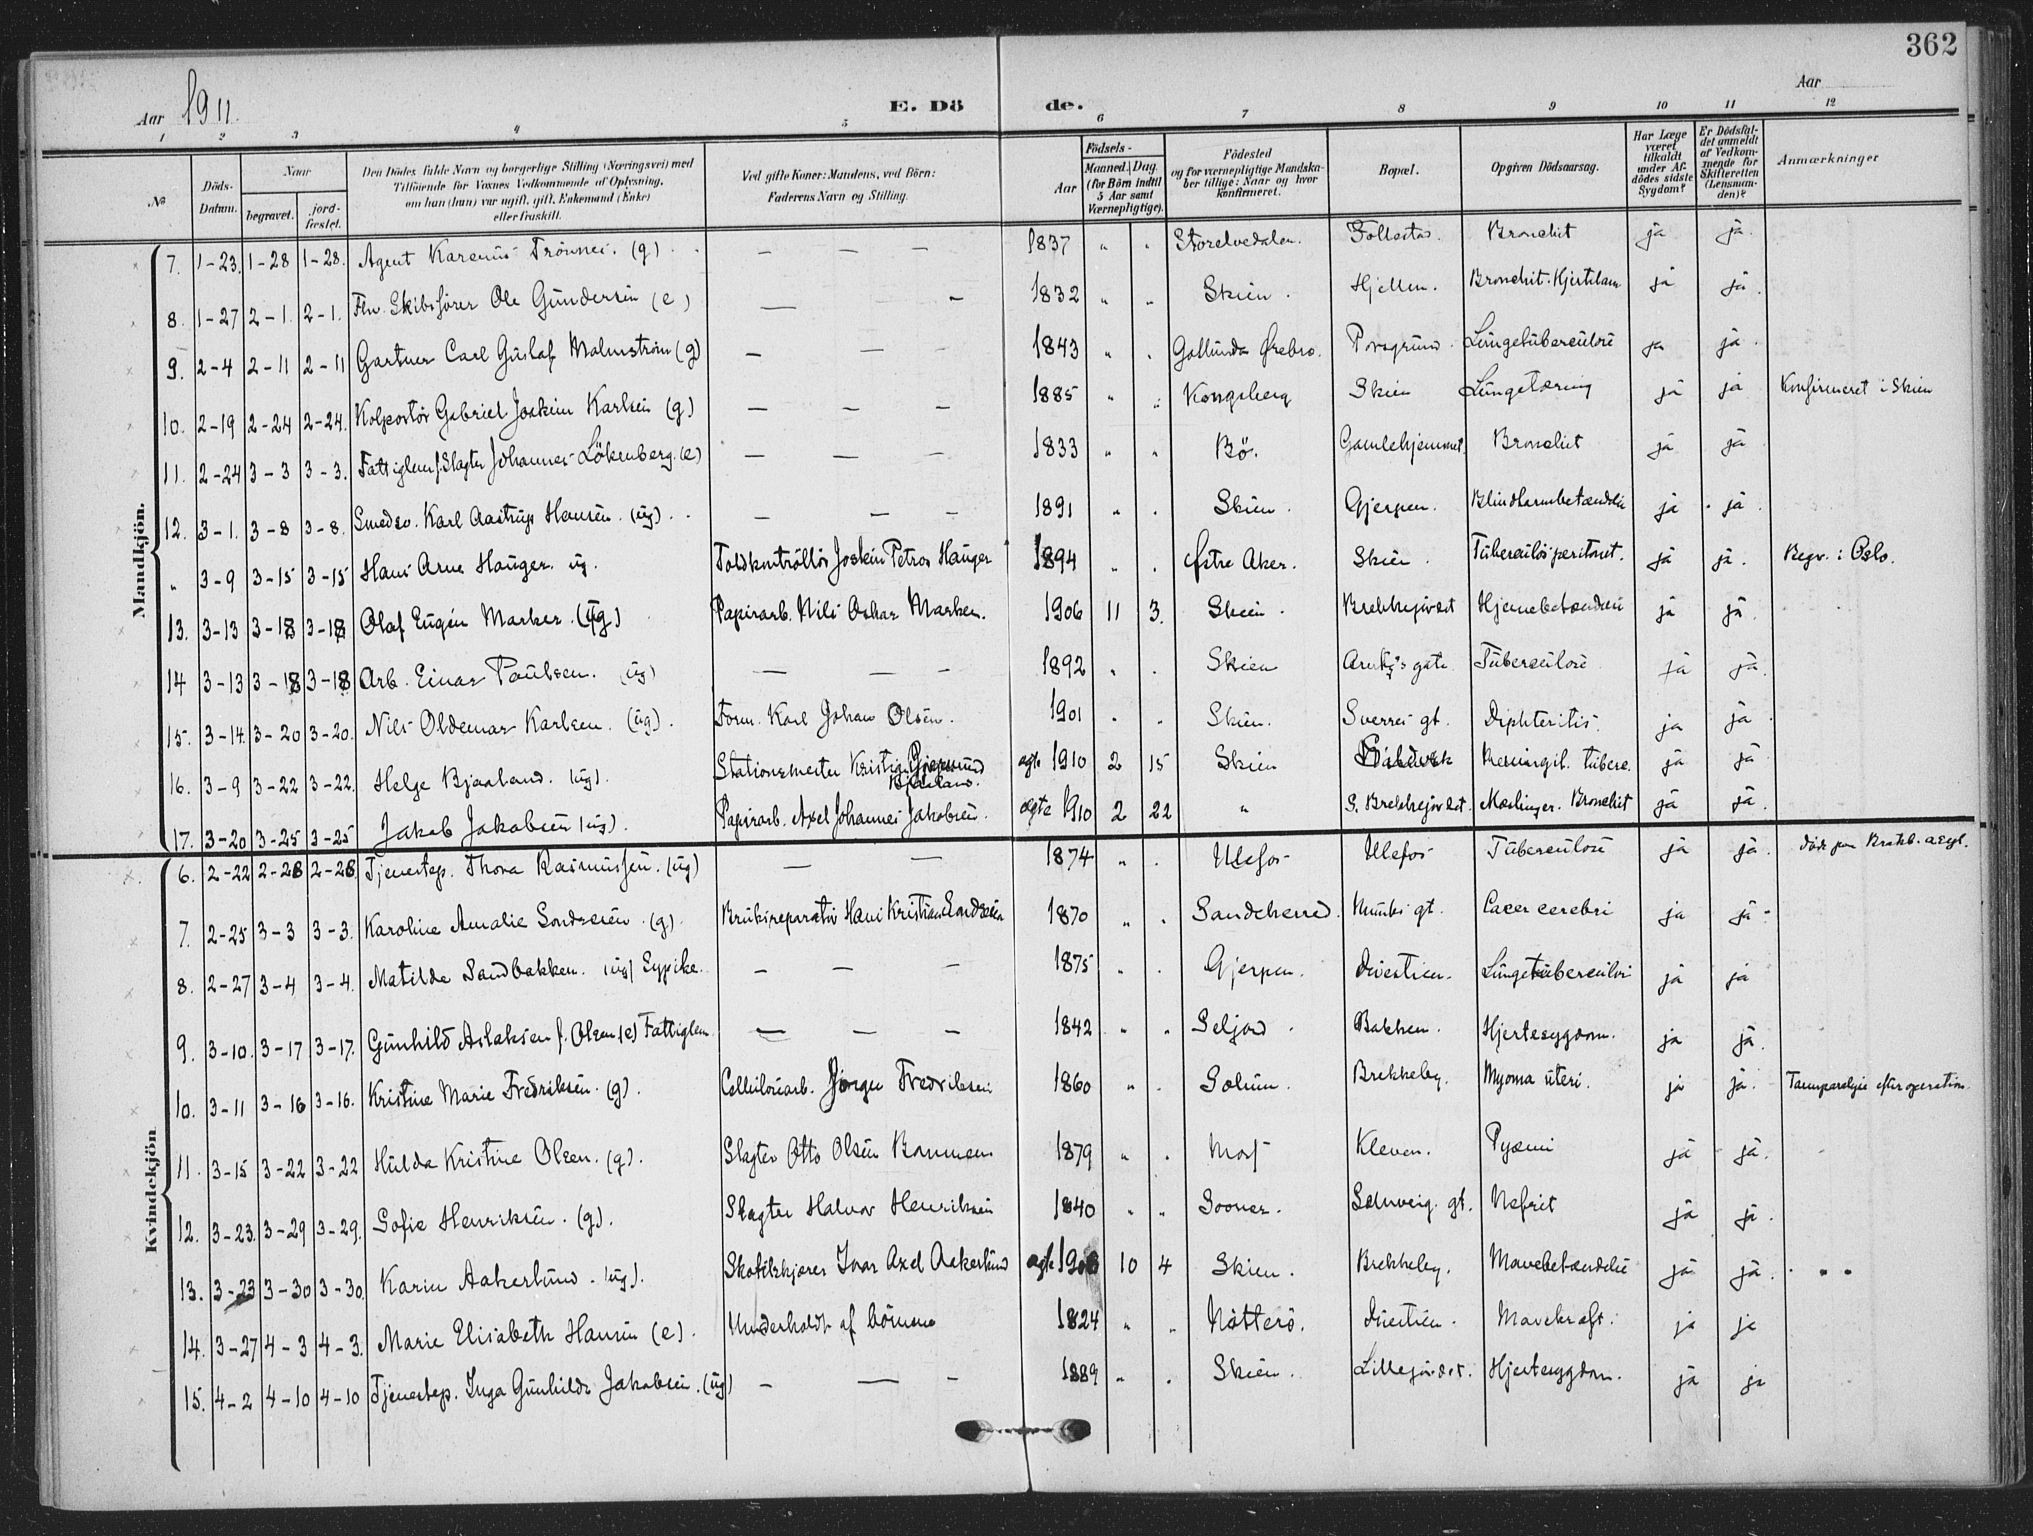 362
Aar 1911.
E. Dö de.
Aar
1 2 3 4 5 6 7 8 9 10 11 12
No
Döds-Datum.
Naar
begravet.
jord-fæstet.
Den Dödes fulde Navn og borgerlige Stilling (Næringsvei) med Tilföiende for Voxnes Vedkommende af Oplysning, om han (hun) var ugift, gift, Enkemand (Enke) eller fraskilt.
Ved gifte Koner: Mandens, ved Börn: Faderens Navn og Stilling.
Födsels-
Aar
Maaned. Dag.
(for Börn indtil 5 Aar samt Værnepligtige).
Födested og for værnepligtige Mandskaber tillige: Naar og hvor konfirmeret.
Bopæl.
Opgiven Dödsaarsag.
Har Læge været tilkaldt under Afdödes sidste Sygdom?
Er Dödsfaldet anmeldt af Vedkommende for Skifteretten (Lensmanden)?
Anmærkninger
Mandkjön.
7. 1-23. 1-28 1-28. Agent Karenius Trönnes. (g) — — — 1837 " " Storelvedalen. Follestad. Bronchit ja ja.
8. 1-27 2-1. 2-1. Fhv. Skibsförer Ole Gundersen (e) — — 1832 " " Skien. Hjellen. Bronchit. Hjertelam ja ja.
9. 2-4 2-11 2-11 Gartner Carl Gustaf Malmström (g) — — — 1843 " " Gällunda Ørebro. Porsgrund. Lungetuberculose ja ja.
10. 2-19 2-24 2-24. Kolportör Gabriel Joakim Karlsen (g) — — — 1885 " " Kongsberg Skien Lungetæring ja ja Konfirmeret i Skien
11. 2-24 3-3 3-3. Fattiglem f. Slagter Johannes Lökenberg. (e) — — — 1833 " " Bö. Gamlehjemmet. Bronchit ja ja.
12. 3-1. 3-8 3-8. Smedsv. Karl Aastrup Hansen. (ug). — — — 1891 " " Skien. Gjerpen. Blindtarmbetændelse ja ja.
" 3-9 3-15 3-15 Hans Arne Hauger. ug. Toldkontrollör Joakim Petros Hauger 1894 " " Østre Aker. Skien. Tuberculös peritonit. ja ja. Begr. i Oslo.
13. 3-13 3-18 3-18 Olaf Eugen Marker. (ug) Papirarb. Nils Oskar Marker. 1906 11 3. Skien. Brekkejordet Hjernebetændelse ja ja.
14 3-13 3-18 3-18 Arb. Einar Paulsen. (ug) — — — 1892 " " Skien gate. Tuberculose ja ja.
15. 3-14. 3-20 3-20. Nils Oldemar Karlsen. (ug). Form. Karl Johan Olsen. 1901 " " Skien. Sverres gt. Diphteritis. ja ja.
16. 3-9 3-22 3-22. Helge Bjaaland. (ug). Stationsmester Kristian Bjaaland. ægte 1910 2 15 Skien Meningit. tuberc. ja ja.
17. 3-20 3-25 3-25 Jakob Jakobsen (ug). Papirarb. Axel Johannes Jakobsen. ægte 1910 2 22 " S. Brekkejordet. Mæslinger. Bronchit ja ja.
Kvindekjön
6. 2-22 2-28 2-28. Tjenestep. Thora Rasmussen. (ug) — — 1874 " " Ulefos Ulefos Tuberculose ja ja. död paa Bratsb. a. syl.
7. 2-25 3-3 3-3. Karoline Amalie Sondresen. (g). Bruksreparatör Hans Kristian Sondresen 1870 " " Sandeherred. Munks gt. Cancer cerebri ja ja.
8. 2-27 3-4 3-4. Matilde Sandbakken. (ug) Sypike. — — — 1875 " " Gjerpen. Duestien. Lungetuberculose ja ja
9. 3-10. 3-17 3-17. Gunhild Aslaksen f. Olsen (e) Fattiglem — — — 1842 " " Seljord. Bakken. Hjertesygdom. ja ja.
10. 3-11 3-16 3-16. Kristine Marie Fredriksen. (g). Cellulosearb. Jörgen Fredriksen 1860 " " Solum. Brekkeby. Myoma uteri. ja ja. Tarmparalyse efter operation.
11. 3-15 3-22 3-22 Hulda Kristine Olsen. (g). Slagter Otto Olsen 1879 " " Moss Kleven. Pyæmi ja ja.
12. 3-23. 3-29 3-29. Sofie Henriksen. (g). Slagter Halvor Henriksen 1840 " " Sooner. Schweig. gt. Nefrit ja ja.
13. 3-23 3-30 3-30. Karin Aakerlund. (ug). Skotöikjörer Ivar Axel Aakerlund ægte 10 4 Skien. Brekkeby. Mavebetændelse ja ja.
14. 3-27 4-3 4-3. Marie Elisabeth Hansen (e). Underholdt af börnene 1824 " " Nötterö. Duestien. Mavekræft. ja ja
15. 4-2 4-10 4-10 Tjenestep. Inga Gunhilde Jakobsen. (ug) — — — 1889 " " Skien. Lillejordet. Hjertesygdom. ja ja